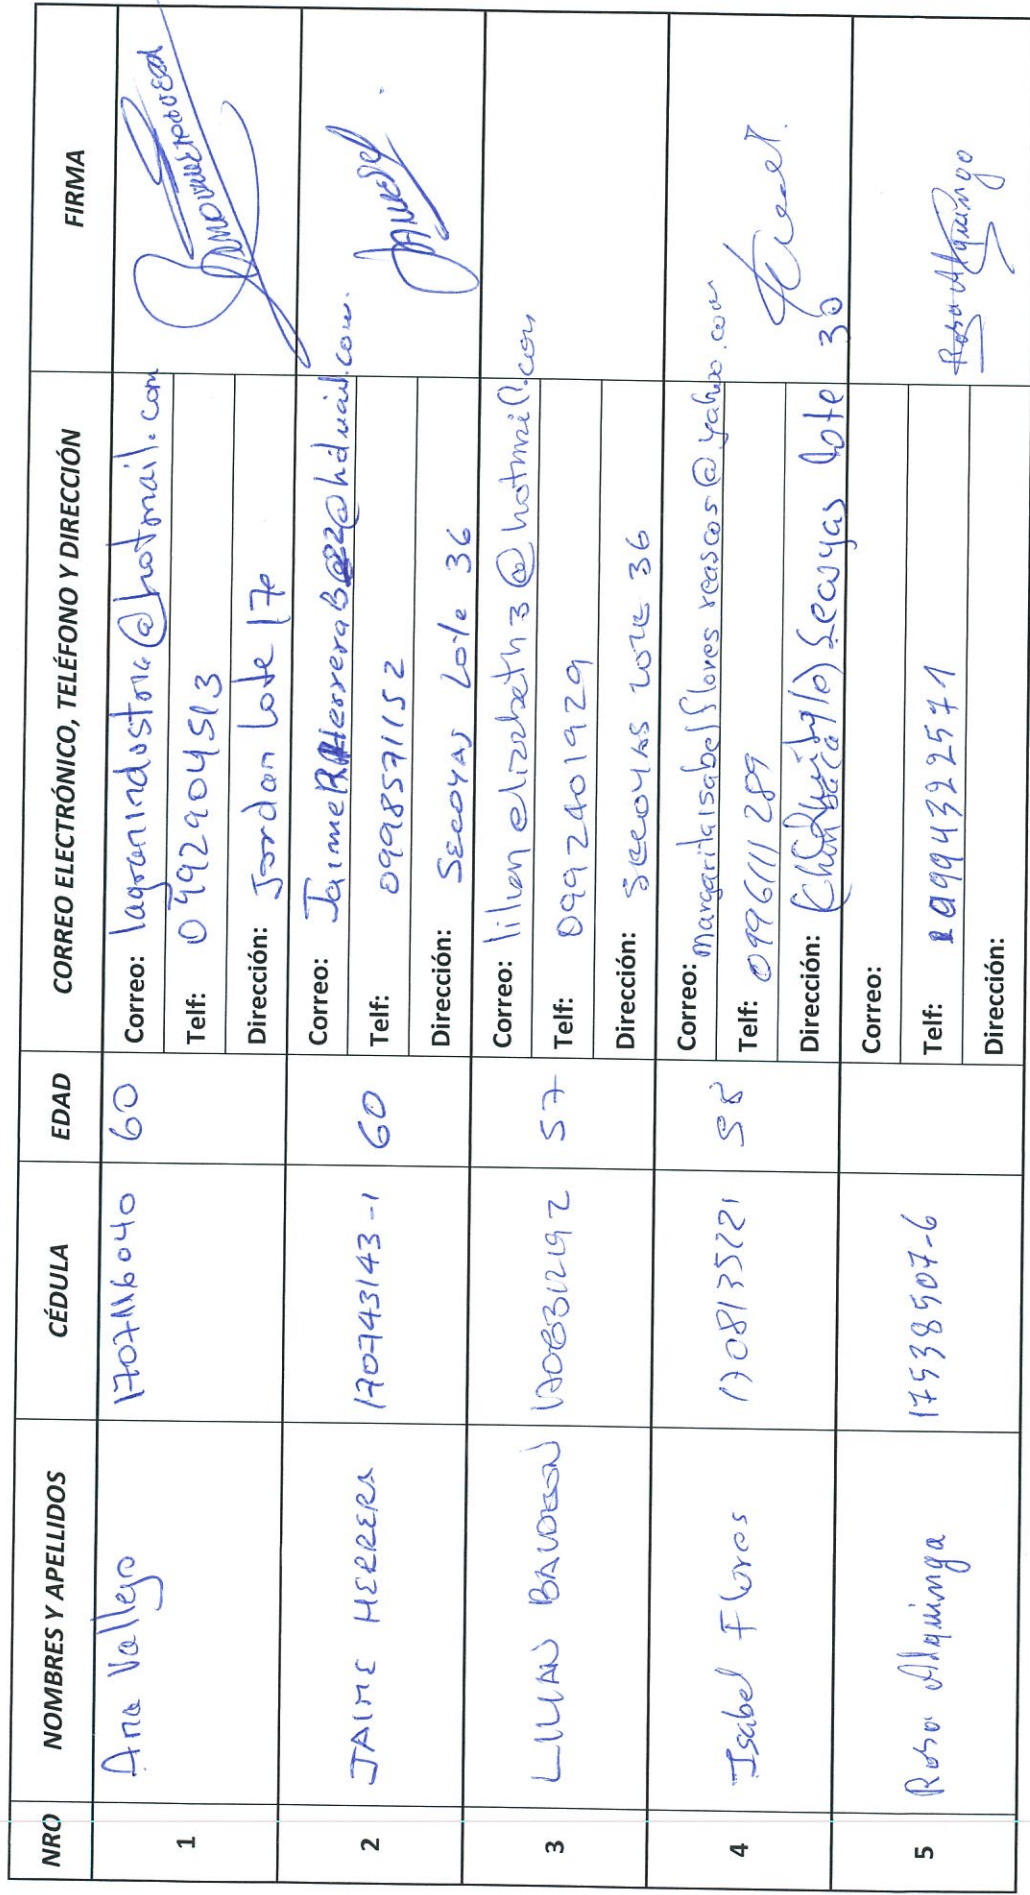 NRO NOMBRES Y APELLIDOS CÉDULA EDAD CORREO ELECTRÓNICO, TELÉFONO Y DIRECCIÓN FIRMA
1 Ana Vallejo 60
Correo: lagranindustria@hotmail.com
Telf: 0992904513
Dirección: Jordan Lote 17
2 JAIME HERRERA 170743143-1 60
Correo:
Telf: 0998571152
Dirección: SECOYAS Lote 36
3 LILIAN 57
Correo: lilianelizabeth3@hotmail.com
Telf: 0992401929
Dirección: SECOYAS LOTE 36
4 Isabel Flores 1708135221 58
Correo: margaritaisabelfloresreascos@yahoo.com
Telf: 0996111289
Dirección: Secoyas lote 30
5 Rosa Alquinga 17538507-6
Correo:
Telf: 0994322571
Dirección:
Rosa Alquinga